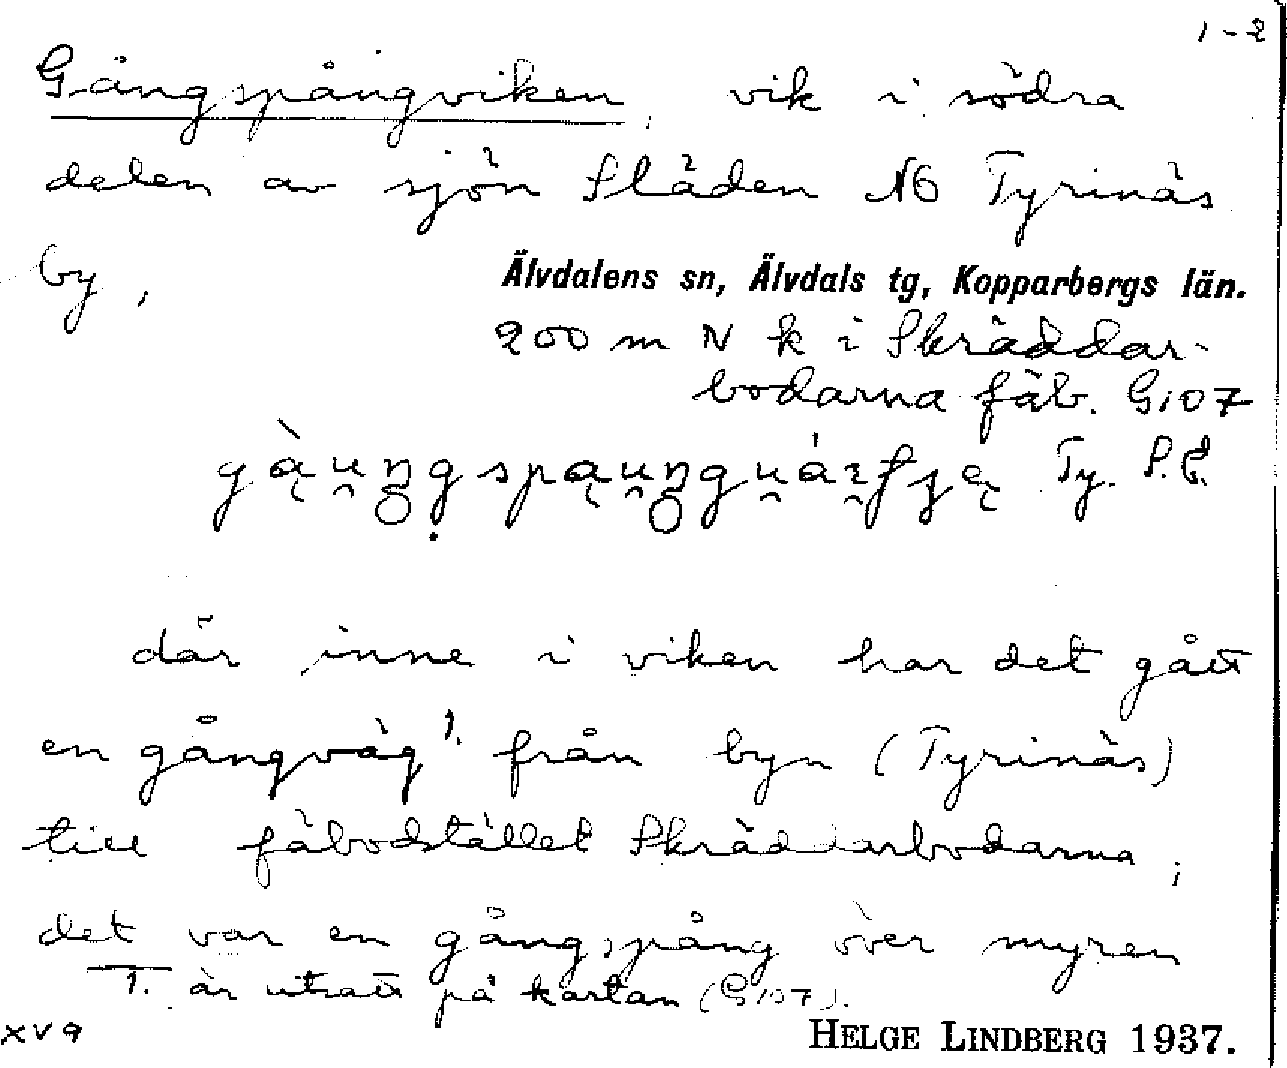 1-2
Gångspångviken, vik i södra
delen av sjön Släden NÖ Tyrinäs
by,
Älvdalens sn, Älvdals tg, Kopparbergs län.
200 m N k i Skräddar-
bodarna fäb. G107
Ty. S.E.
där inne i viken har det gått
en gångväg 1. från byn (Tyrinäs)
till fäbodstället Skräddarbodarna;
det var en gångspång över myren
1. är utsatt på kartan (G107).
XV9
HELGE LINDBERG 1937.